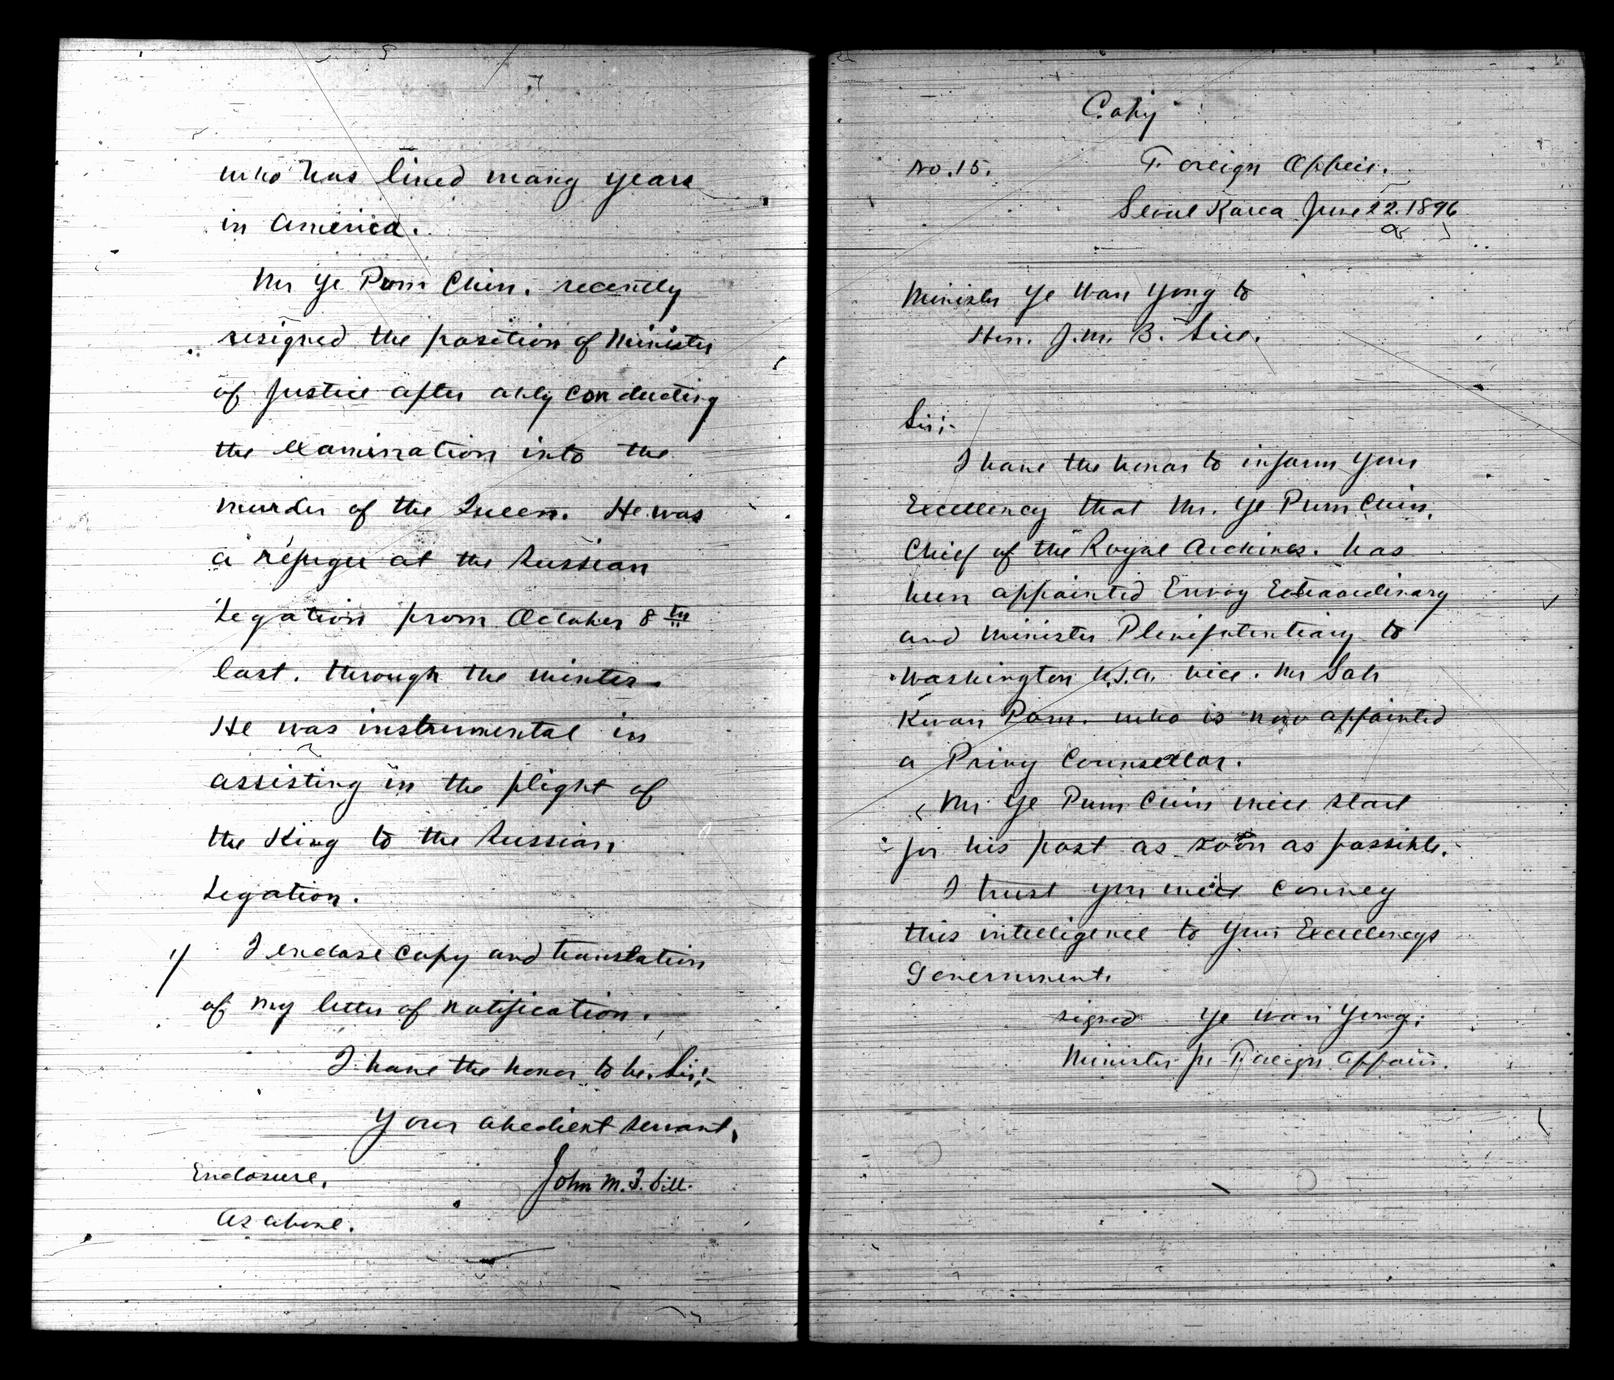 who has lived many years
in America.
Mr Ye Pom Chin, recently
resigned the position of Minister
of Justice after ably conducting
the examination into the
murder of the Queen. He was
a refugee at the Russian
Legation from October 8th
last, through the winter.
He was instrumental in
assisting in the flight of
the King to the Russian
Legation.
1/ I enclose copy and translation
of my letter of notification.
I have the honor to be, Sir;-
Your obedient servant,
John M. B. Sill.
Enclosure.
As above.
Copy
No. 15. Foreign Office.
Seoul Korea June 22. 1896
Minister Ye Wan Yong to
Hon. J. M. B. Sill.
Sir;-
I have the honor to inform Your
Excellency that Mr. Ye Pum Chin,
Chief of the Royal Archives, has
been appointed Envoy Extraordinary
and Minister Plenipotentiary to
Washington U.S.A. vice. Mr Soh
Kwan Pom. who is now appointed
a Privy Counsellor.
Mr Ye Pum Chin will start
for his post as soon as possible.
I trust you will convey
this intelligence to Your Excellencys
Government.
signed Ye Wan Yong;
Minister for Foreign Affairs.